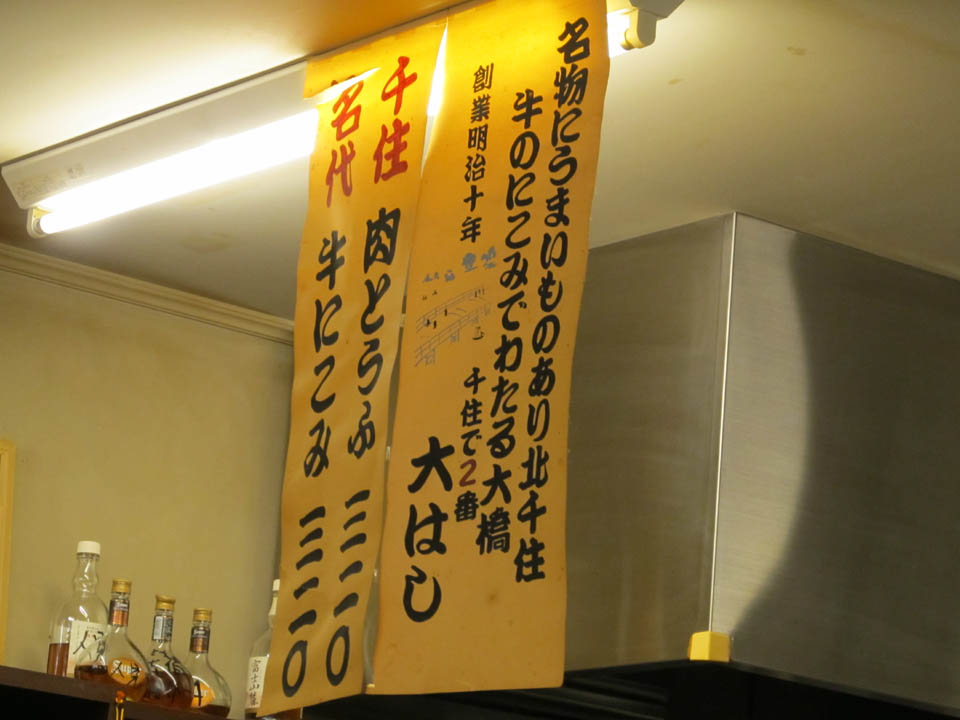 名物にうまいものあり北千住
牛のにこみでわたる大橋
創業明治十年
千住で2番
大はし
千住 肉とうふ 三二〇
名代 牛にこみ 三二〇
富士山麓